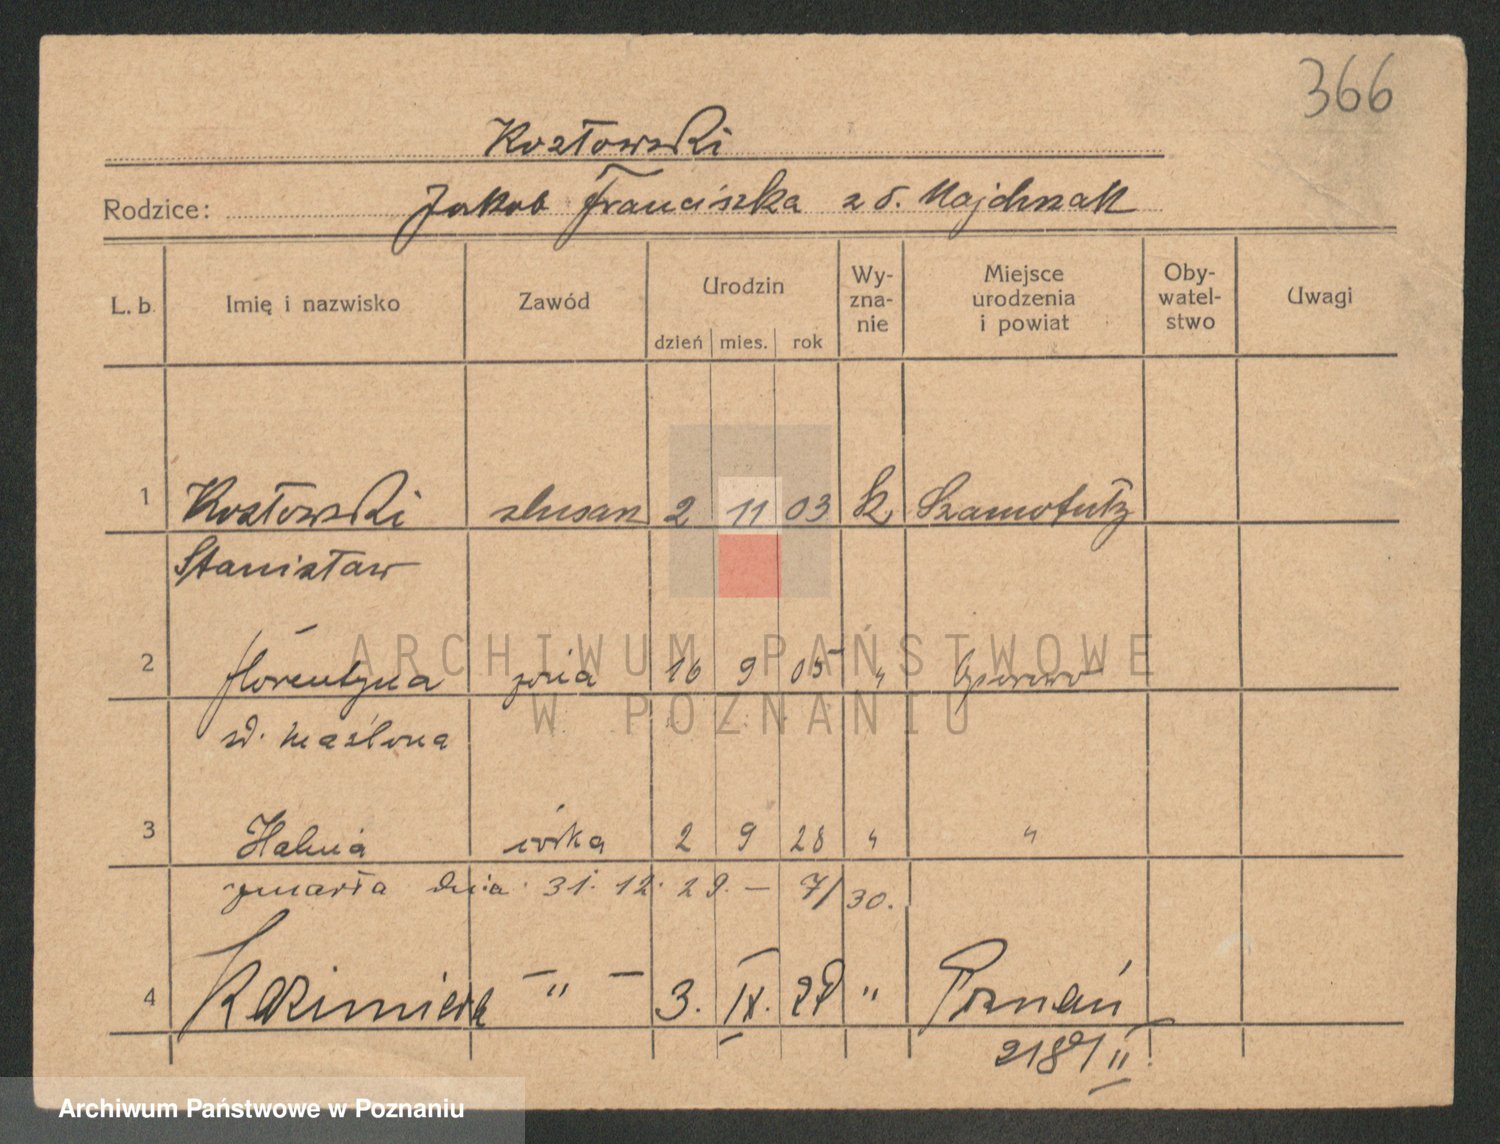 366
Kozłowski
Rodzice: Jakob Franciszka z d. Majchrzak
L. b. Imię i nazwisko Zawód Urodzin dzień mies. rok Wy-zna-nie Miejsce urodzenia i powiat Oby-watel-stwo Uwagi
1 Kozłowski ślusarz 2 11 03 k Szamotuły
Stanisław
2 Florentyna żona 16 9 05 "
ARCHIWUM PAŃSTWOWE
W POZNANIU
zd. Maślona
3 córka 2 9 28 " "
zmarła dnia 31. 12. 29. — 7/30.
4 Kazimiera — " — 3. IX. "  Poznań
II
Archiwum Państwowe w Poznaniu